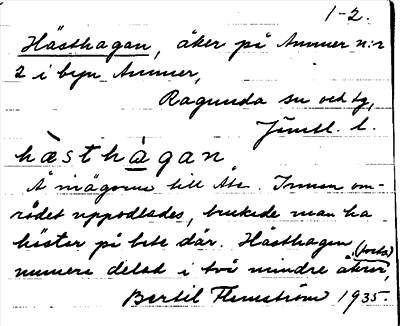 1-2.
Hästhagen, åker på Ammer n:r
2 i byn Ammer,
Ragunda sn och tg,
Jämtl. l.
hæsthàgan
Å inägorna till Åsen. Innan om-
rådet uppodlades, brukade man ha
hästar på bete där. Hästhagen (borta)
numera delad i två mindre åkrar,
Bertil Flemström 1935.